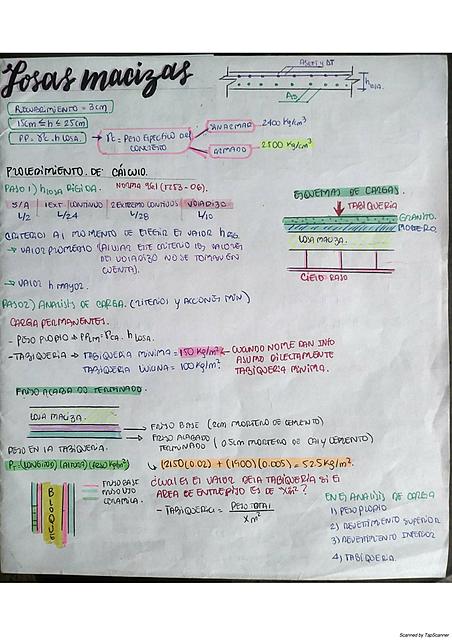 Losas macizas
Asref y DT
hlosa.
As
Recubrimiento = 3cm
15cm ≤ h ≤ 25cm
PP = γc . h losa
γc = Peso especifico del concreto
Sin armar 2400 Kg/cm³
Armado 2500 Kg/cm³
Procedimiento de cálculo.
Paso 1) hlosa rigida. Norma 961 (1753-06).
S/A 1 ext continuo 2 extremo continuos Voladizo
L/2 L/24 L/28 L/10
Criterios al momento de elegir el valor hlosa.
→ Valor promedio (al usar este criterio los valores
del voladizo no se toman en
cuenta).
→ Valor h mayor.
Esquemas de cargas.
Tabiquería
Granito
Mortero
Losa maciza.
Cielo raso
Paso 2) Analisis de carga. (Criterios y acciones min)
Carga permanentes.
- Peso propio → PPLM = γCA. h losa.
- Tabiqueria → Tabiquería mínima = 150 Kg/m² → Cuando no me dan info
asumo directamente
tabiquería mínima.
Tabiqueria liviana = 100 Kg/m².
Friso acabado terminado.
Losa maciza.
Friso base (2cm mortero de cemento)
Friso acabado
terminado (0.5cm mortero de cal y cemento)
Peso en la tabiqueria.
PT = (longitud) (altura) (peso Kg/m²)
(2150)(0.02) + (1900)(0.005) = 52.5 Kg/m².
Bloque
Friso base
Friso liso
ceramica.
¿Cuál es el valor de la tabiquería si el
area de entrepiso es de xm²?
- Tabiqueria = Peso total / xm²
En el analisis de carga
1) Peso propio
2) Revestimiento superior
3) Revestimiento inferior
4) Tabiqueria.
Scanned by TapScanner